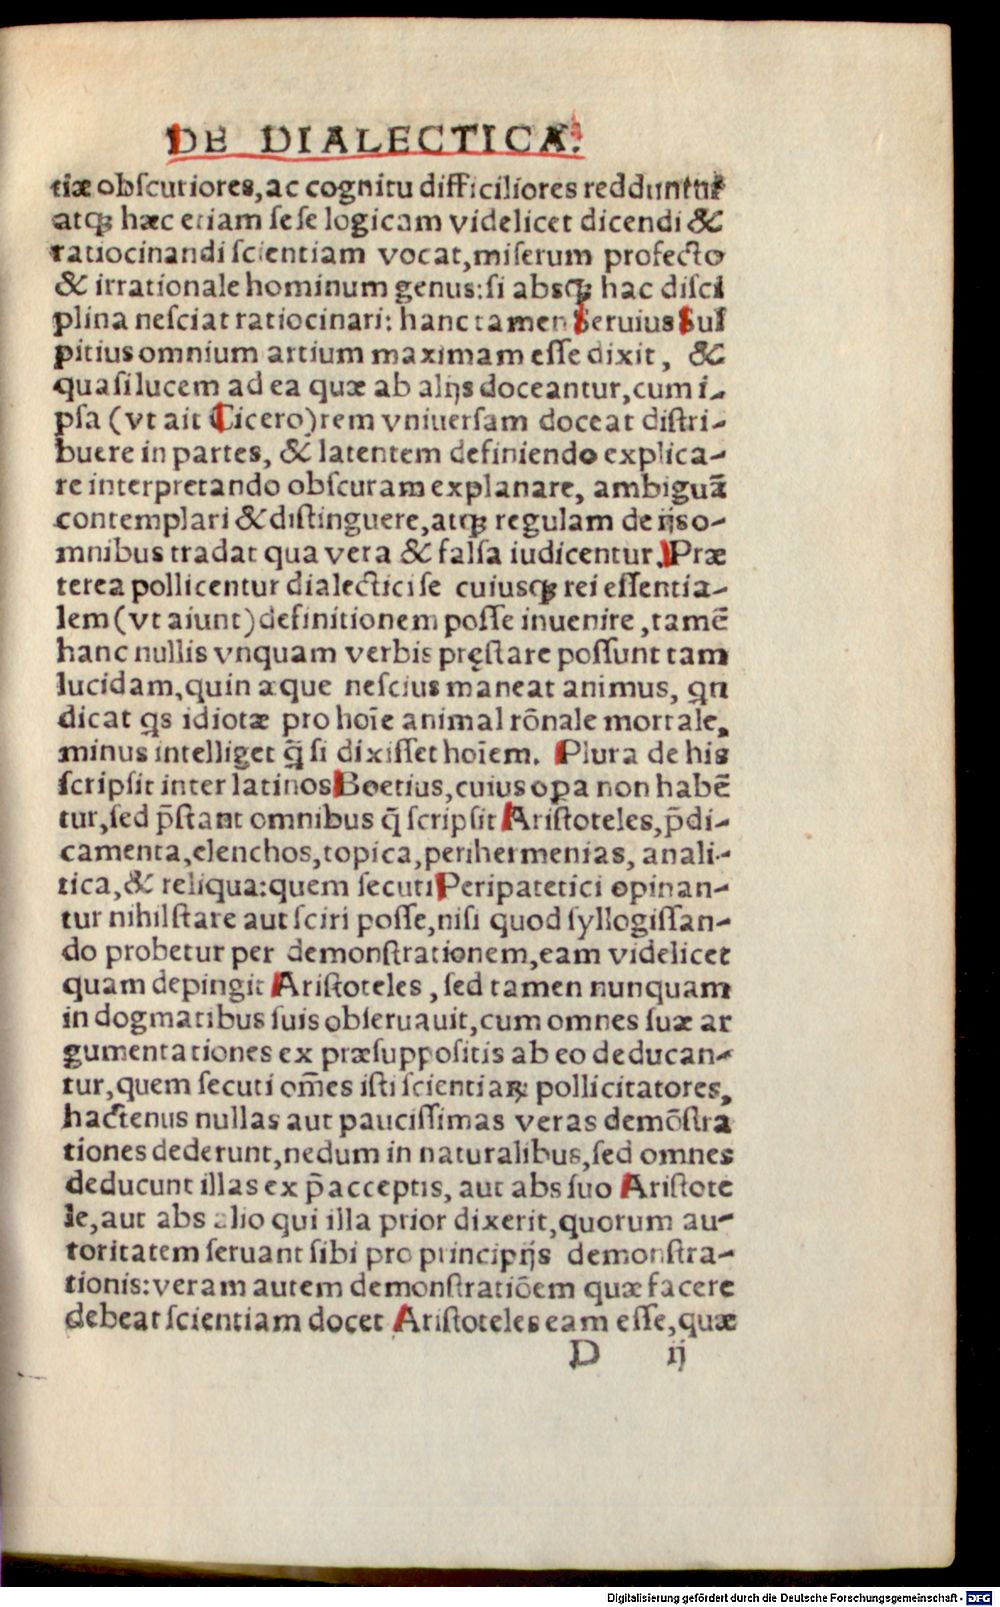 DE DIALECTICA.
tiæ obscutiores, ac cognitu difficiliores redduntur
atqꝫ hæc etiam sese logicam videlicet dicendi &
ratiocinandi scientiam vocat, miserum profecto
& irrationale hominum genus: si absqꝫ hac disci
plina nesciat ratiocinari: hanc tamen Seruius Sul
pitius omnium artium maximam esse dixit, &
quasi lucem ad ea quæ ab alijs doceantur, cum i-
psa (vt ait Cicero) rem vniuersam doceat distri-
buere in partes, & latentem definiendo explica-
re interpretando obscuram explanare, ambiguā
contemplari & distinguere, atqꝫ regulam de ijs o-
mnibus tradat qua vera & falsa iudicentur. Præ
terea pollicentur dialectici se cuiusqꝫ rei essentia-
lem (vt aiunt) definitionem posse inuenire, tamē
hanc nullis vnquam verbis pręstare possunt tam
lucidam, quin æque nescius maneat animus, qn
dicat qs idiotæ pro hoīe animal rōnale mortale,
minus intelliget q̄ si dixisset hoīem. Plura de his
scripsit inter latinos Boetius, cuius opa non habē
tur, sed p̄stant omnibus q̄ scripsit Aristoteles, p̄di-
camenta, elenchos, topica, perihermenias, anali-
tica, & reliqua: quem secuti Peripatetici opinan-
tur nihil stare aut sciri posse, nisi quod syllogissan-
do probetur per demonstrationem, eam videlicet
quam depingit Aristoteles, sed tamen nunquam
in dogmatibus suis obseruauit, cum omnes suæ ar
gumentationes ex præsuppositis ab eo deducan-
tur, quem secuti om̄es isti scientiaꝝ pollicitatores,
hactenus nullas aut paucissimas veras demōstra
tiones dederunt, nedum in naturalibus, sed omnes
deducunt illas ex p̄acceptis, aut abs suo Aristote
le, aut abs alio qui illa prior dixerit, quorum au-
toritatem seruant sibi pro principijs demonstra-
tionis: veram autem demonstratiōem quæ facere
debeat scientiam docet Aristoteles eam esse, quæ
D ij
Digitalisierung gefördert durch die Deutsche Forschungsgemeinschaft - DFG